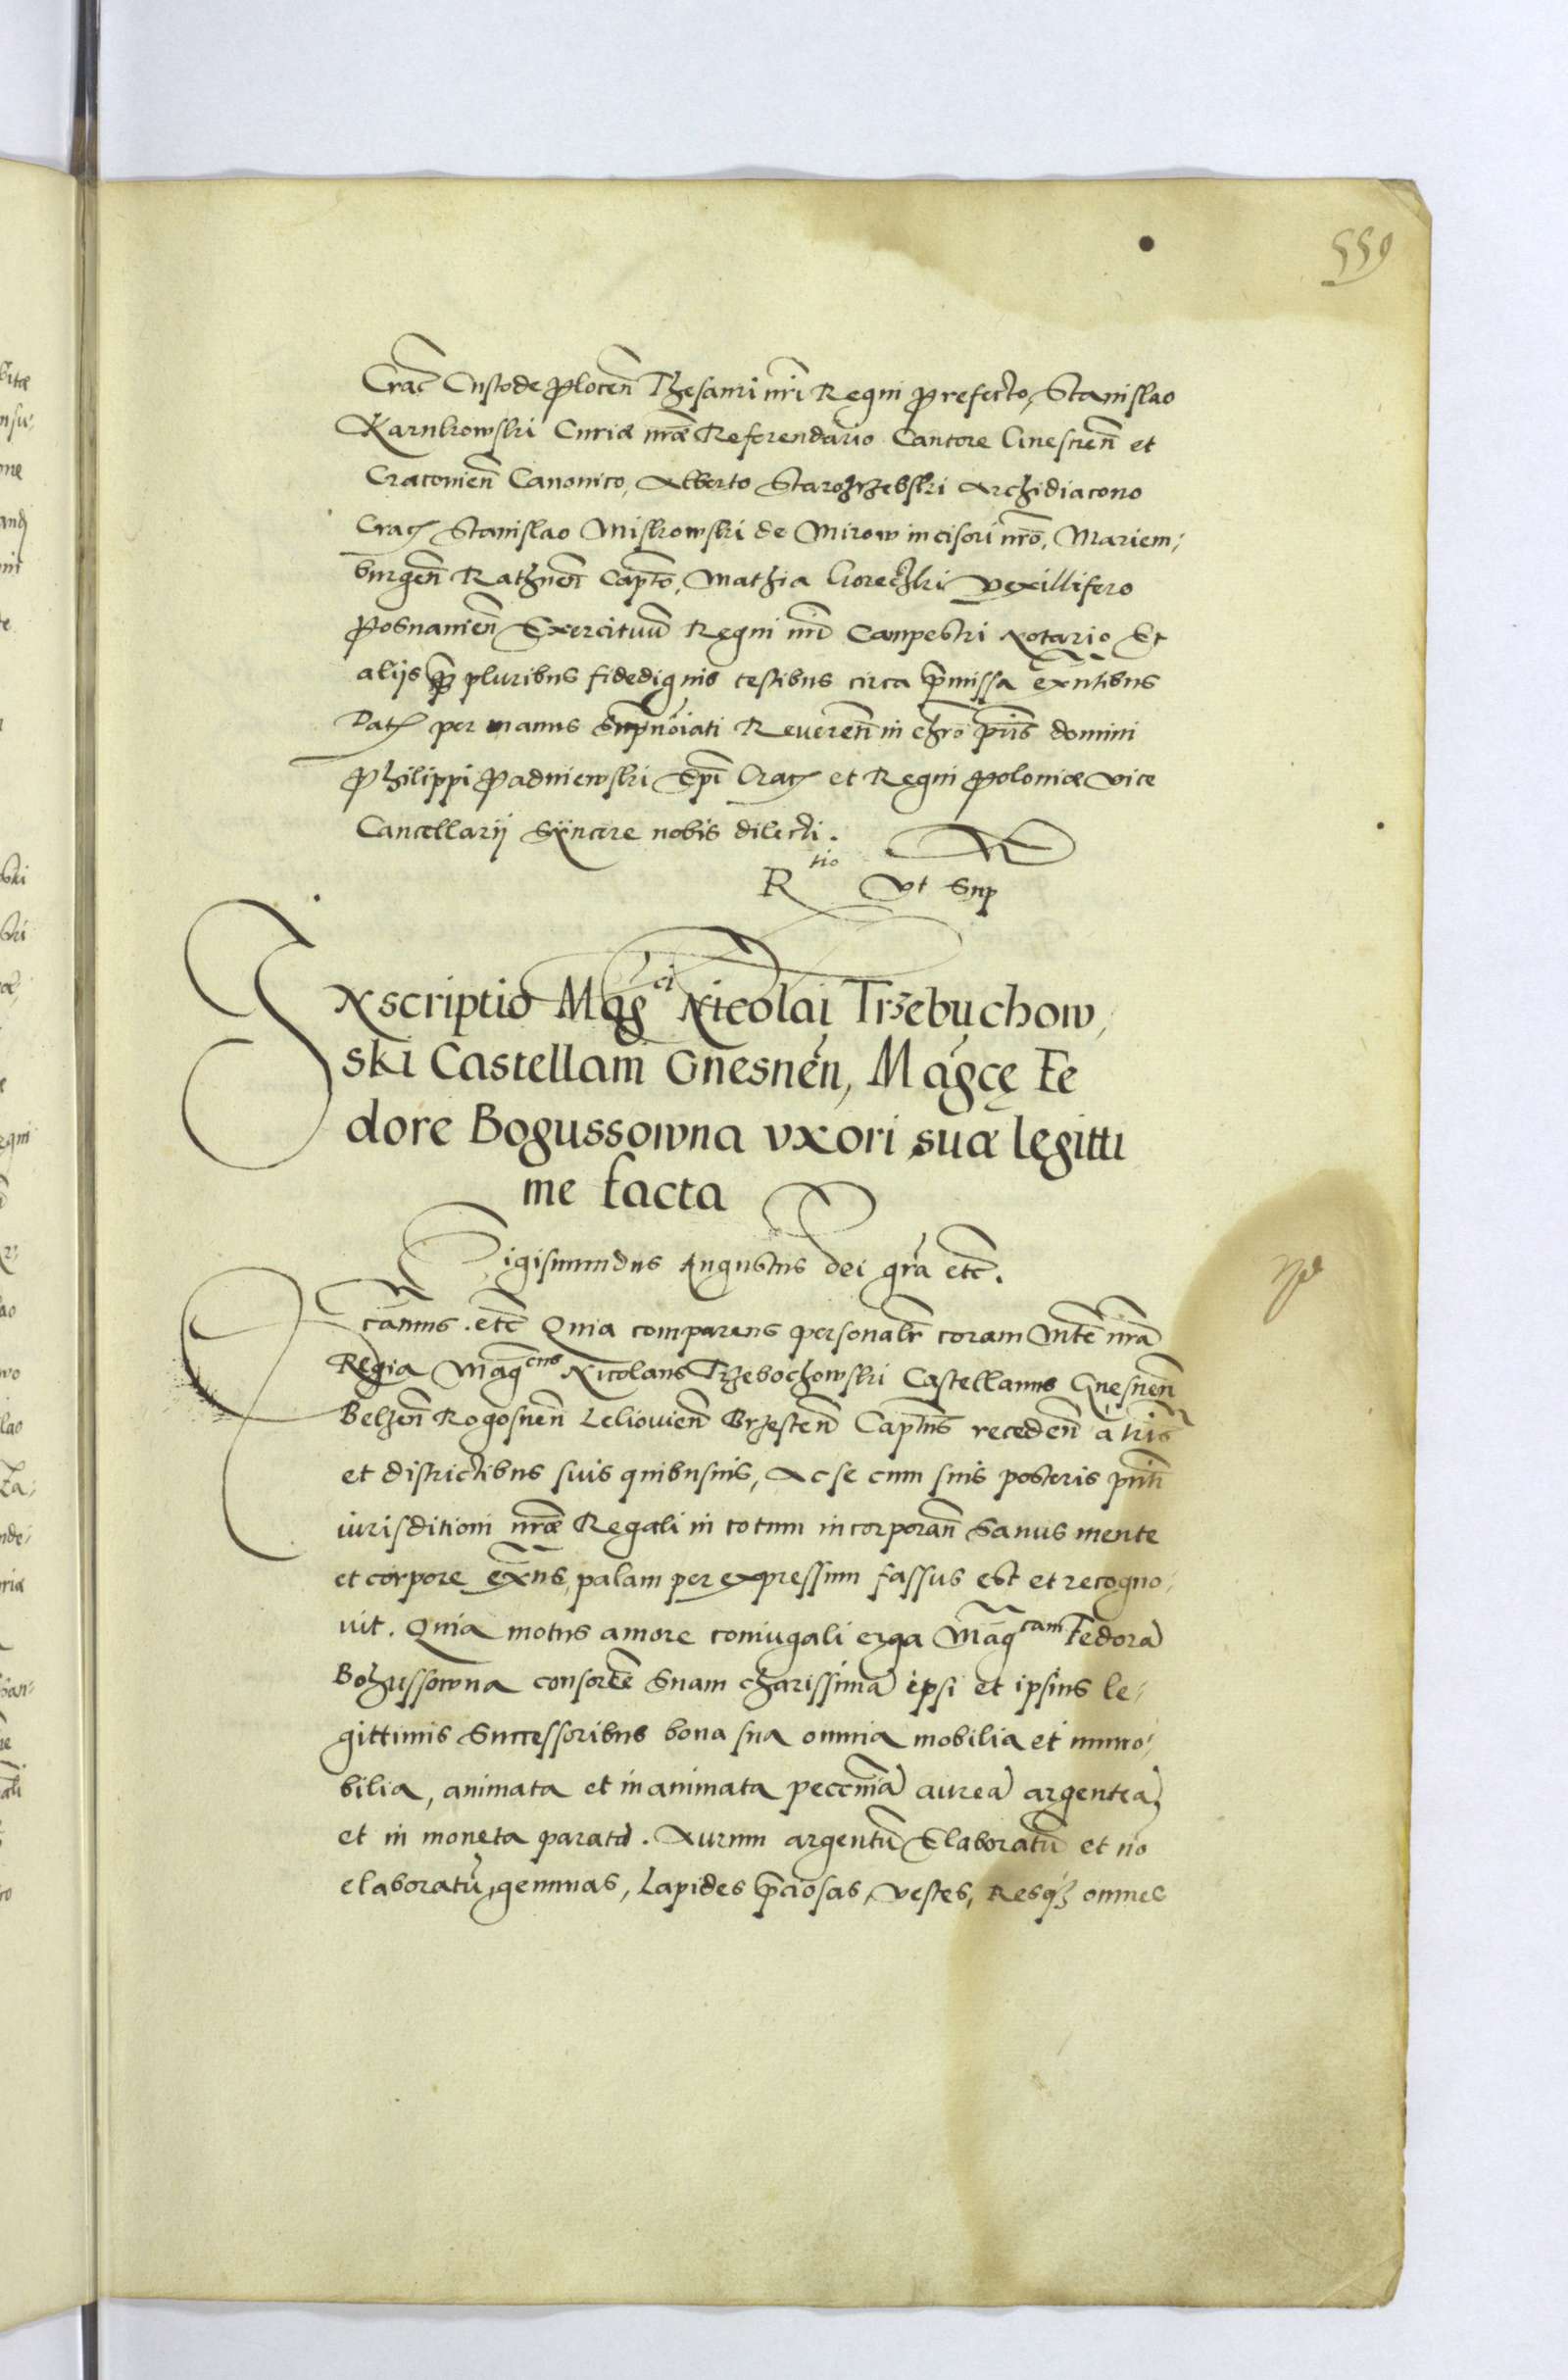 559
Crac̄ Custode Plocen̄ Thesauri nr̄i Regni Prefecto, Stanislao
Karnkowski Curiæ nr̄æ Referendario Cantore Gnesnen̄ et
Cracovien̄ Canonico, Alberto Starozrzebski Archidiacono
Crac̄ Stanislao Miskowski de Mirow incisori nr̄o, Mariem,
burgen̄ Rathnen̄ Capt̄o, Mathia Goreczki Vexillifero
Posnanien̄ Exercituum Regni nr̄i Campestri Notario Et
alijs pluribus fidedignis testibus circa p̄missa ex̄ntibus
Dat̄ per manus Supnōiati Reveren̄ in chr̄o pr̄is domini
Philippi Padniewski Ep̄i Crac̄ et Regni Poloniæ Vice
Cancellarij Syncere nobis dilecti.
Rtio Vt Sup
Inscriptio Magci Nicolai Trzebuchow,
ski Castellani Gnesnen̄, Mag̃cę Fe
dore Bogussowna vxori suæ legitti
me facta
Sigismundus Augustus Dei gr̄a etc̄.
cāmus. etc̄ Quia comparens personalr̄ coram Mt̄e nr̄a
Regia Magcus Nicolaus Trzebochowski Castellanus Gnesnen̄
Belzen̄ Rogosnen̄ Leliovien̄ Brzesten̄ Capt̄us receden̄ a tr̄is
et districtibus suis quibusuis, Ac se cum suis posteris pn̄ti
iurisditioni nr̄æ Regali in totum incorporan̄ Sanus mente
et corpore ex̄ns, palam per expressum fassus est et recogno,
uit. Quia motus amore coniugali erga Magcam Fedorā
Bohussowna consortē Suam charissimā ipsi et ipsius le,
gittimis Successoribus bona sua omnia mobilia et immo,
bilia, animata et inanimata peccuniā aureā argenteā,
et in moneta paratā. Aurum argentū Elaboratū et nō
elaboratū, gemmas, Lapides p̄ciosas, vestes, Resq̃ omnes